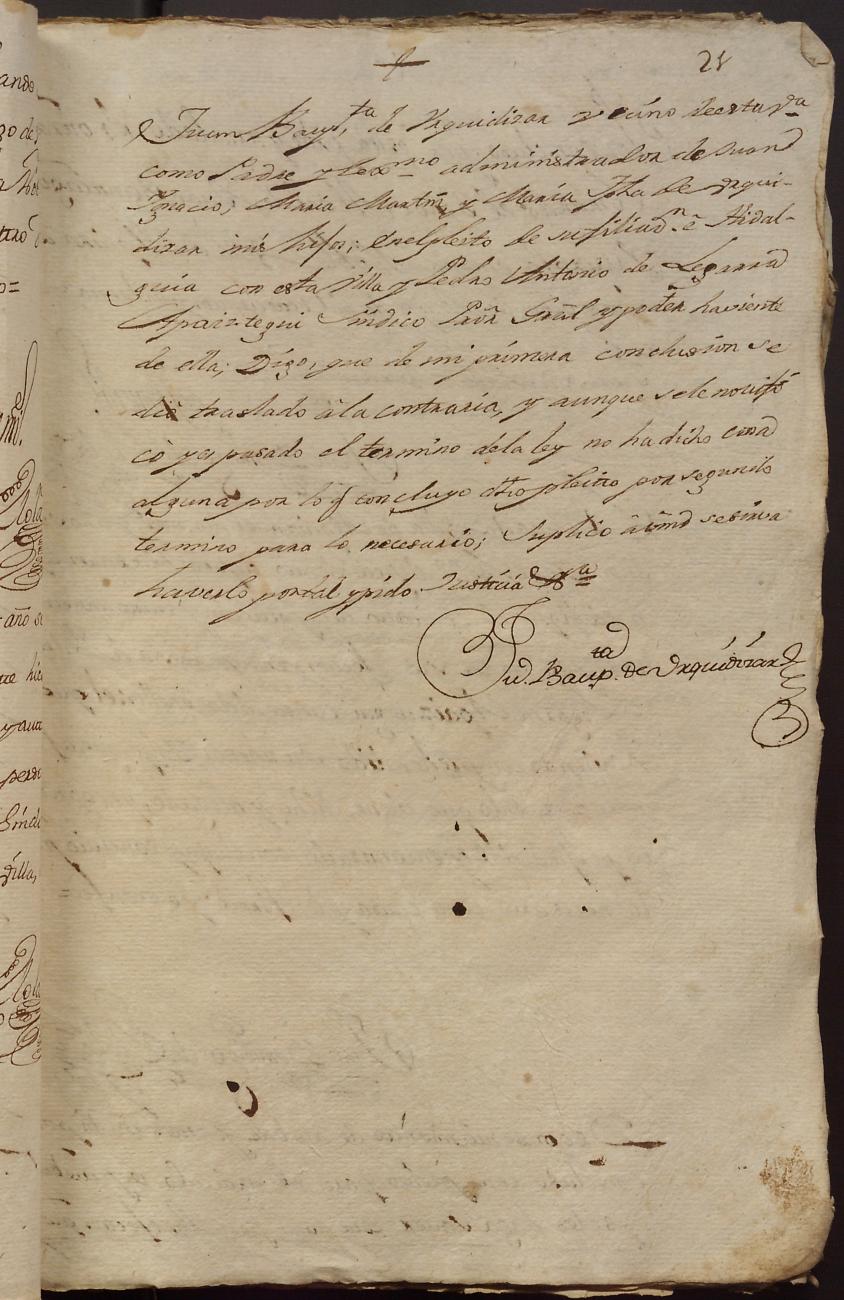 21
Juan Bap.ta de Urquidizar vecino de esta v.a
como Padre y lex.mo administrador de Juan
Ignacio; Maria Martin y Maria Jpha de Urqui-
dizar mis hijos; enelpleito de su filiaz.n é Hidal-
guia con esta Villa y Pedro Antonio de Legarra
Aparategui Sindico Pror Gral y poder haviente
de ella; Digo, que de mi primera conclusion se
dió traslado à la contraria, y aunque sele notifi
cò y es pasado el termino dela ley no ha dicho cosa
alguna por lo q concluyo dho pleito por segundo
termino para lo necesario; Suplico à vmd se sirva
haverlo portal y pido Justicia
Ju. Baup.ta de Urquidizar
ando
go de
año se
que hici
y aun
Villa,